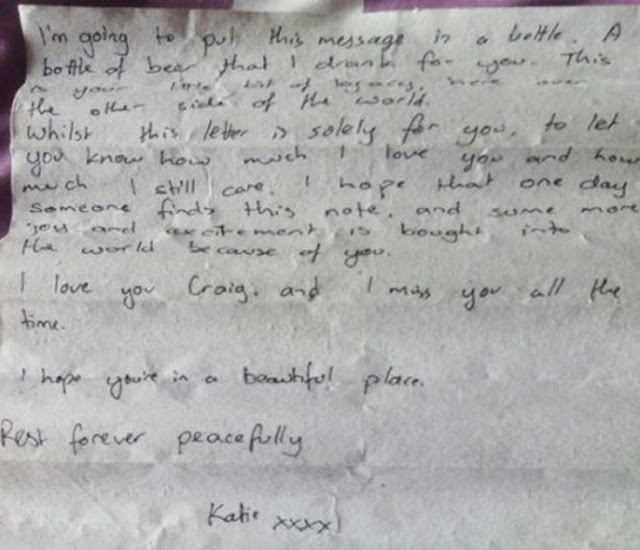 I'm going to put this message in a bottle. A
bottle of beer that I drank for you. This
is your little bit of legacy, here over
the other side of the world.
Whilst this letter is solely for you, to let
you know how much I love you and how
much I still care. I hope that one day
someone finds this note, and some more
joy and excitement is bought into
the world because of you.
I love you Craig, and I miss you all the
time.
I hope you're in a beautiful place.
Rest forever peacefully
Katie xxxx